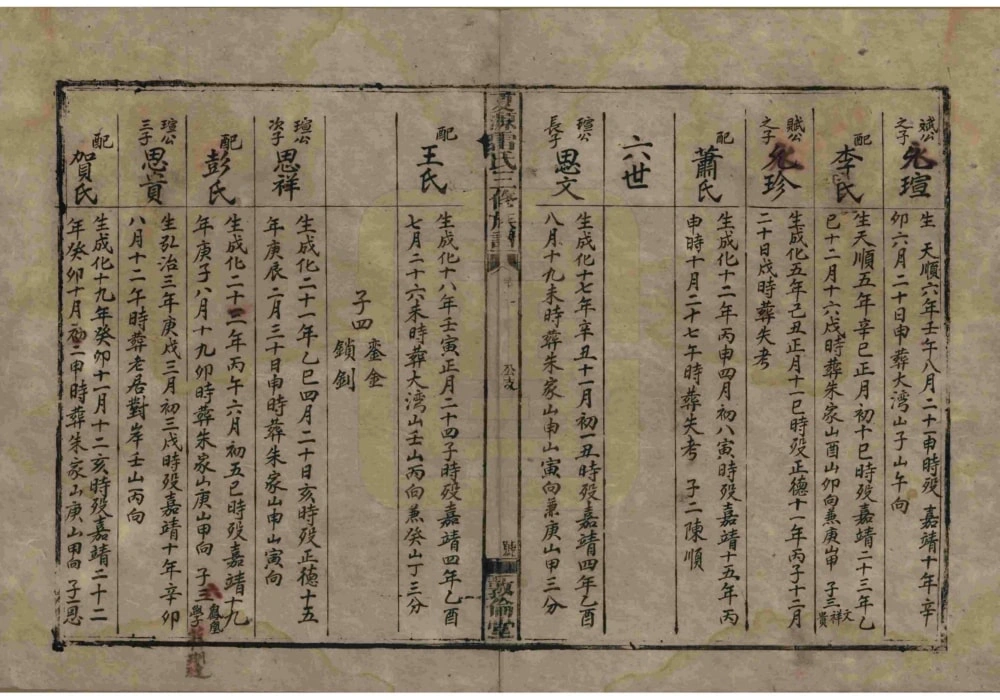 斌公之子 允瑄
生 天順六年壬午八月二十一申時殁 嘉靖十年辛
卯六月二十日申時葬大湾山子山午向
配 李氏
生天順五年辛巳正月初十巳時殁嘉靖二十三年乙
巳十二月十六戌時葬朱家山酉山卯向兼庚山甲 子三 文祥貴
賦公之子 允珍
生成化五年己丑正月十一巳時殁正德十一年丙子十二月
二十日戌時葬失考
配 蕭氏
生成化十二年丙申四月初八寅時殁嘉靖十五年丙
申時十月二十七午時葬失考 子二陳順
六世
瑄公長子 思文
生成化十七年辛丑十一月初一丑時殁嘉靖四年乙酉
八月十九未時葬朱家山申山寅向兼庚山甲三分
氏三修族譜
敦倫堂
配 王氏
生成化十八年壬寅正月二十四子時殁嘉靖四年乙酉
七月二十六未時葬大湾山壬山丙向兼癸山丁三分
子四 鎏金
鎖釗
瑄公次子 思祥
生成化二十一年乙巳四月二十日亥時殁正德十五
年庚辰二月三十日申時葬朱家山申山寅向
配 彭氏
生成化二十二年丙午六月初五巳時殁嘉靖十九
年庚子八月十九卯時葬朱家山庚山甲向 子三 鳳凰學
瑄公三子 思貴
生弘治三年庚戌三月初三戌時殁嘉靖十年辛卯
八月十二午時葬老居對岸壬山丙向
配 賀氏
生成化十九年癸卯十一月十二亥時殁嘉靖二十二
年癸卯十月初二申時葬朱家山庚山甲向 子恩